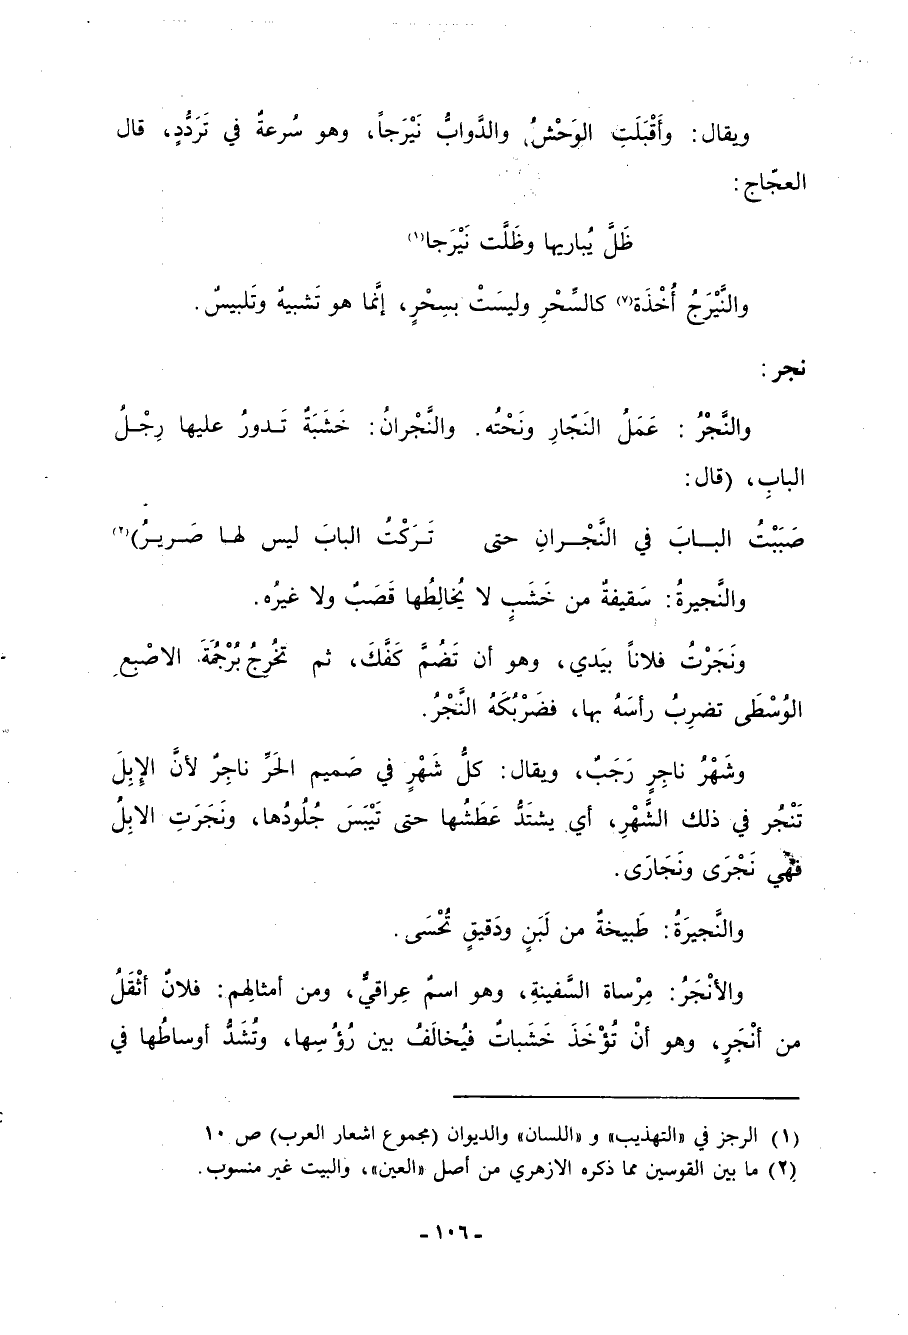 ويقال: وأَقْبَلَتِ الوَحْشُ والدَّوابُّ نَيْرَجاً، وهو سُرعةٌ في تَرَدُّدٍ، قال
العجّاج:
ظَلَّ يُباريها وظَلَّت نَيْرَجا(١)
والنَّيْرَجُ أُخْذَة(٧) كالسِّحْرِ وليسَتْ بسِحْرٍ، إنَّما هو تَشبيهٌ وتَلبيسٌ.
نجر:
والنَّجْرُ: عَمَلُ النَجّارِ ونَحْتُه. والنَّجْرانُ: خَشَبَةٌ تَـدورُ عليها رِجْـلُ
البابِ، (قال:
صَبَبْتُ البـابَ في النَّجْـرانِ حتى تَـرَكْتُ البابَ ليس لها صَـريـرُ)(٢)
والنَّجيرةُ: سَقيفةٌ من خَشَبٍ لا يُخالِطُها قَصَبٌ ولا غيرُه.
ونَجَرْتُ فلاناً بيَدي، وهو أن تَضُمَّ كَفَّكَ، ثم تخُرِجُ بُرْجُمَةَ الاصْبعِ
الوُسْطَى تضرِبُ رأسَهُ بها، فضَرْبُكَهُ النَّجْرُ.
وشَهْرُ ناجِرٍ رَجَبٌ، ويقال: كلُّ شَهْرٍ في صَميم الحَرِّ ناجِرٌ لأنَّ الإِبلَ
تَنْجُر في ذلك الشَّهْرِ، أي يشتَدُّ عَطَشُها حتى تَيْبَسَ جُلُودُها، ونَجَرَتِ الابلُ
فهي نَجْرَى ونَجَارَى.
والنَّجيرَةُ: طَبيخةٌ من لَبَنٍ ودَقيقٍ تُحْسَى.
والأنْجَرُ: مِرْساة السَّفينةِ، وهو اسمٌ عِراقيٌّ، ومن أمثالهم: فلانٌ أثْقَلُ
من أنْجَرٍ، وهو أنْ تُؤْخَذَ خَشَباتٌ فيُخالَفُ بين رُؤُسِها، وتُشَدُّ أوساطُها في
(١) الرجز في «التهذيب» و «اللسان» والديوان (مجموع اشعار العرب) ص ١٠
(٢) ما بين القوسين مما ذكره الازهري من أصل «العين»، والبيت غير منسوب.
- ١٠٦ -